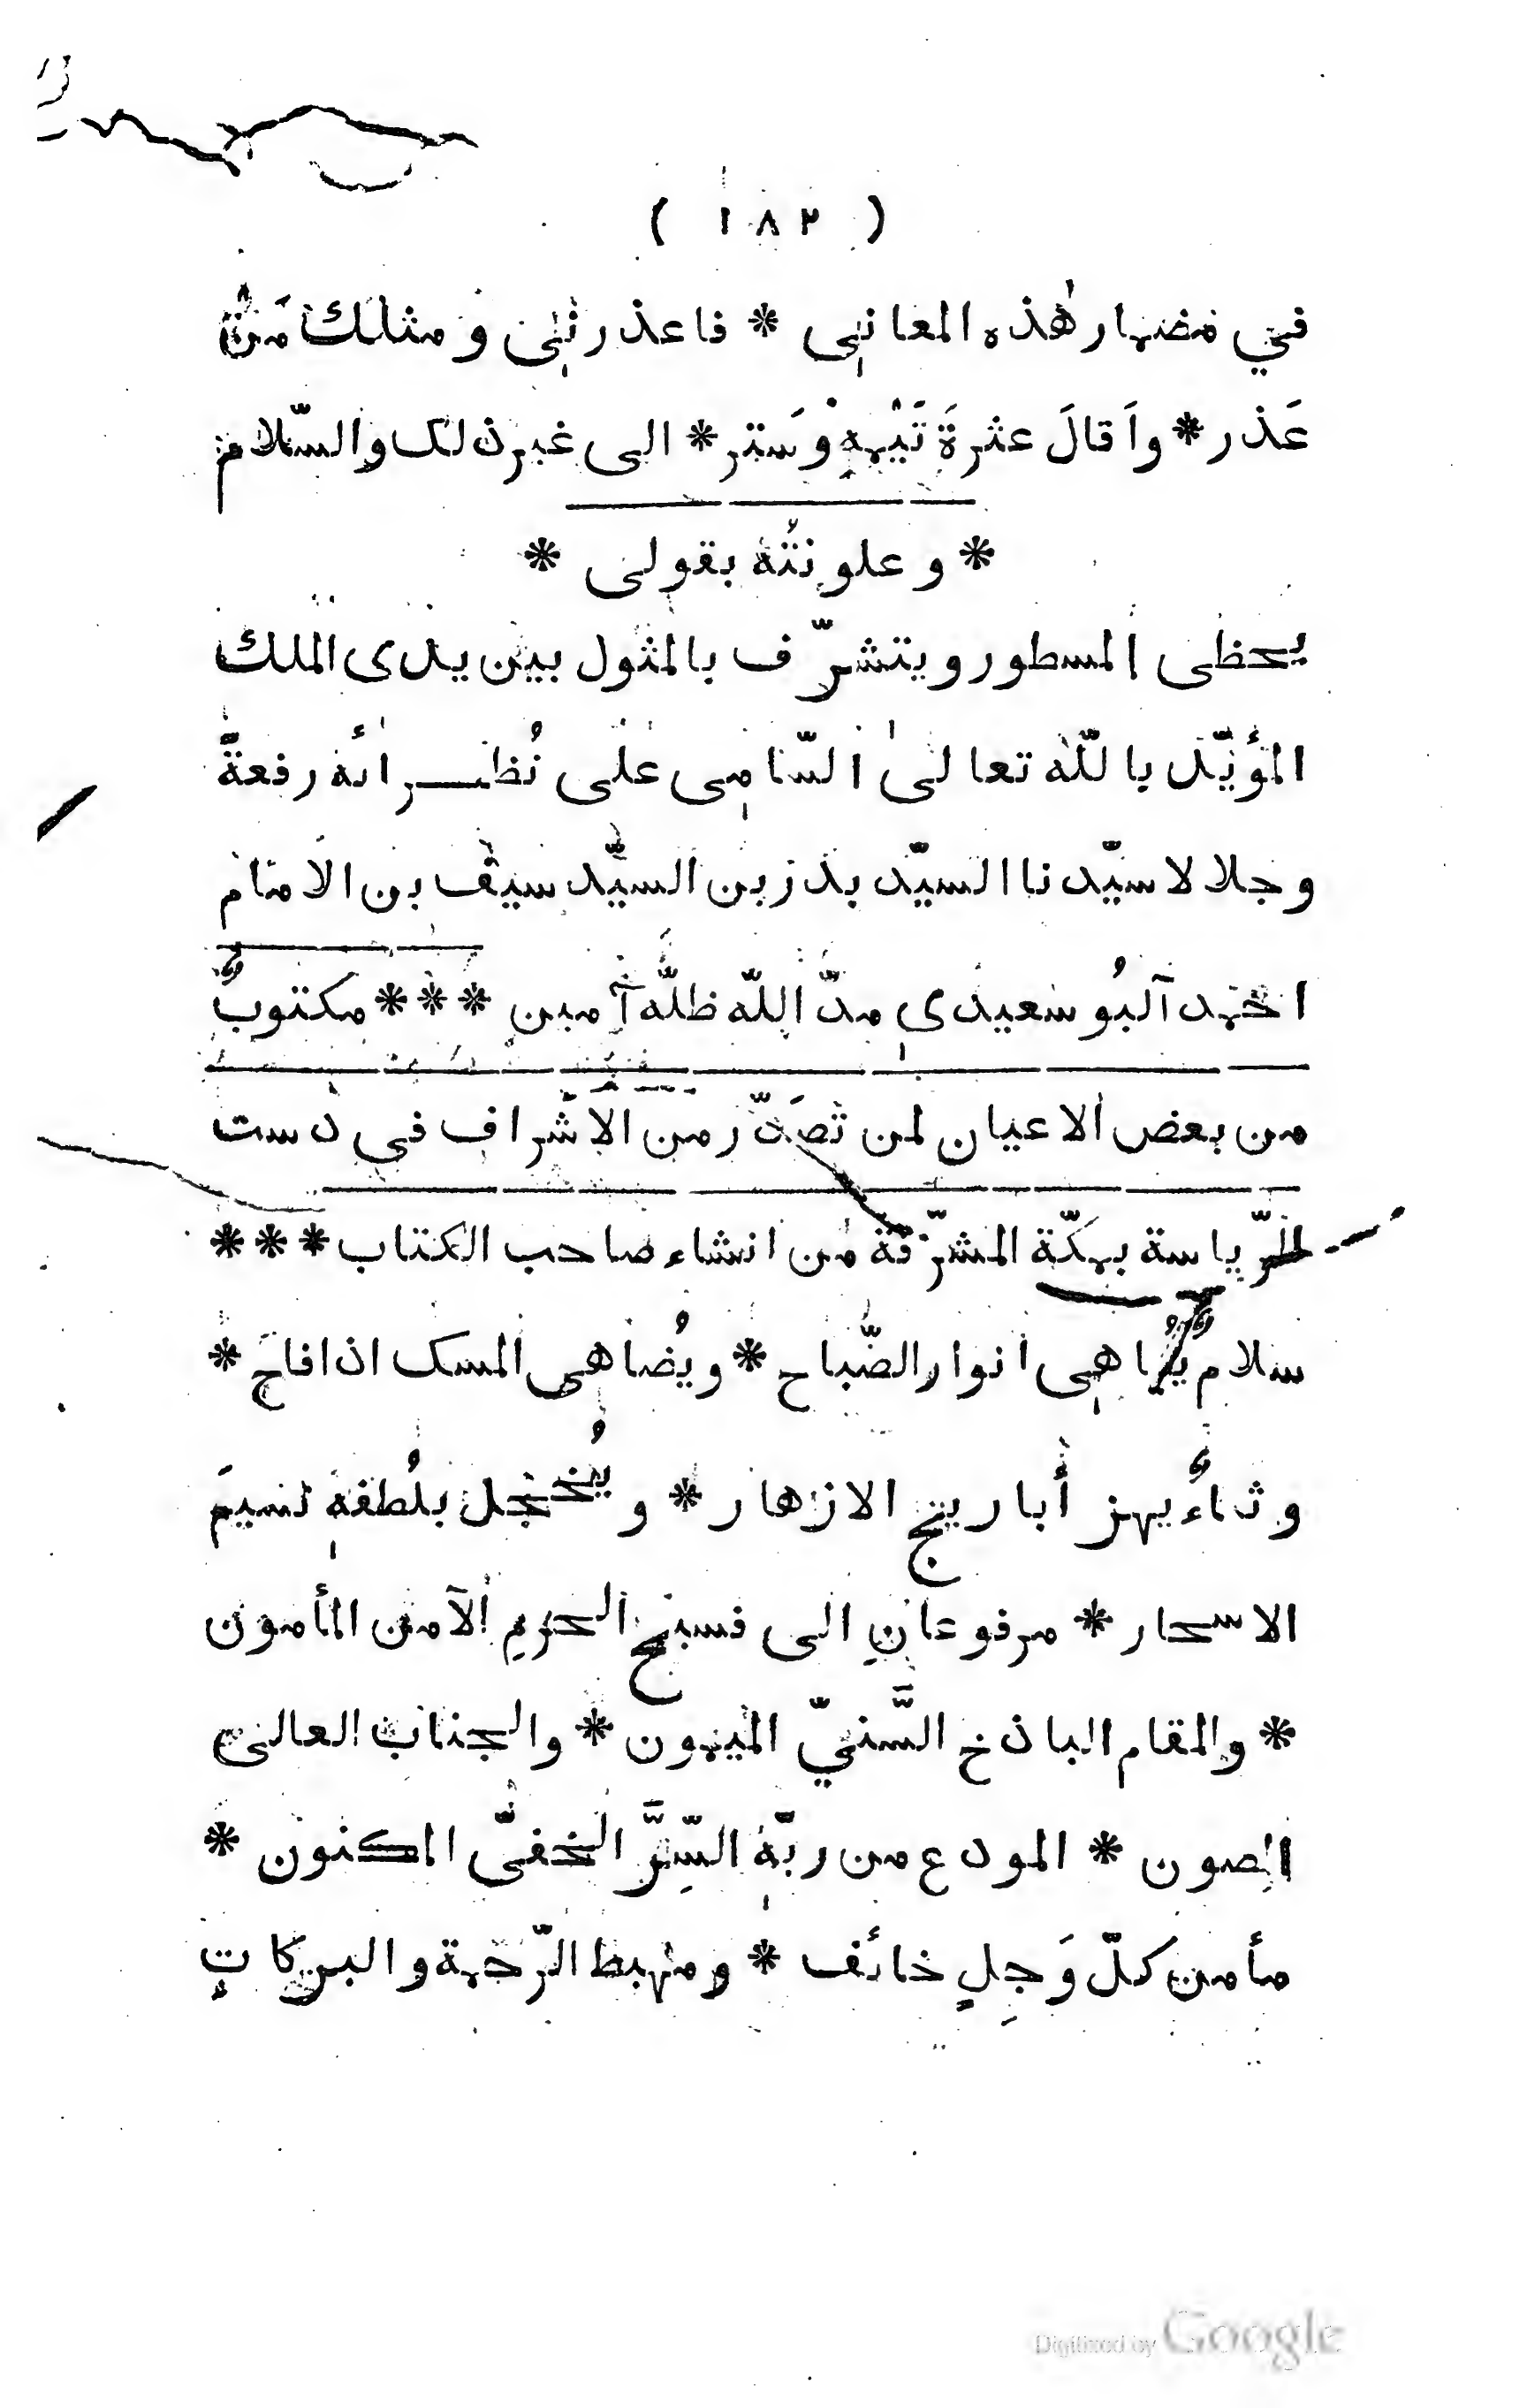 ( ١٨٢ )
في مضمار هٰذه المعاني * فاعذرني ومثلك مَن
عَذر * واَقالَ عثرةَ تَيْهِهِ وسَتر * الى غير ذلك والسّلام
* وعلونتُه بقولى *
يحظى المسطور ويتشرّف بالمثول بين يدى الملك
المؤيّد باللّه تعالىٰ السّامِى على نُظـرائه رفعةً
وجلالا سيّدنا السيّد بدر بن السيّد سيف بن الامام
احمد آلبُو سعيدى مدّ اللّه ظلّه آمين *** مكتوبٌ
من بعض الاعيان لمن تصَدّر من الاشراف فى دست
الرّياسة بمكّة المشرّفة من انشاء صاحب الكتاب ***
سلامٌ يُباهِى انوار الصّباح * ويُضاهى المسك اذا فاح *
وثناءٌ يهز أباريج الازهار * ويُخجل بلُطفهِ نسيمَ
الاسحار * مرفوعانِ الى فسيح الحرمِ الآمن المأمون
* والمقام الباذخ السَّنيّ الميمون * والجناب العالى
المصون * المودع من ربّهِ السِّرَّ الخفىّ المكنون *
مأمن كلّ وَجِلٍ خائف * ومهبط الرّحمة والبركاتِ
Digitized by Google